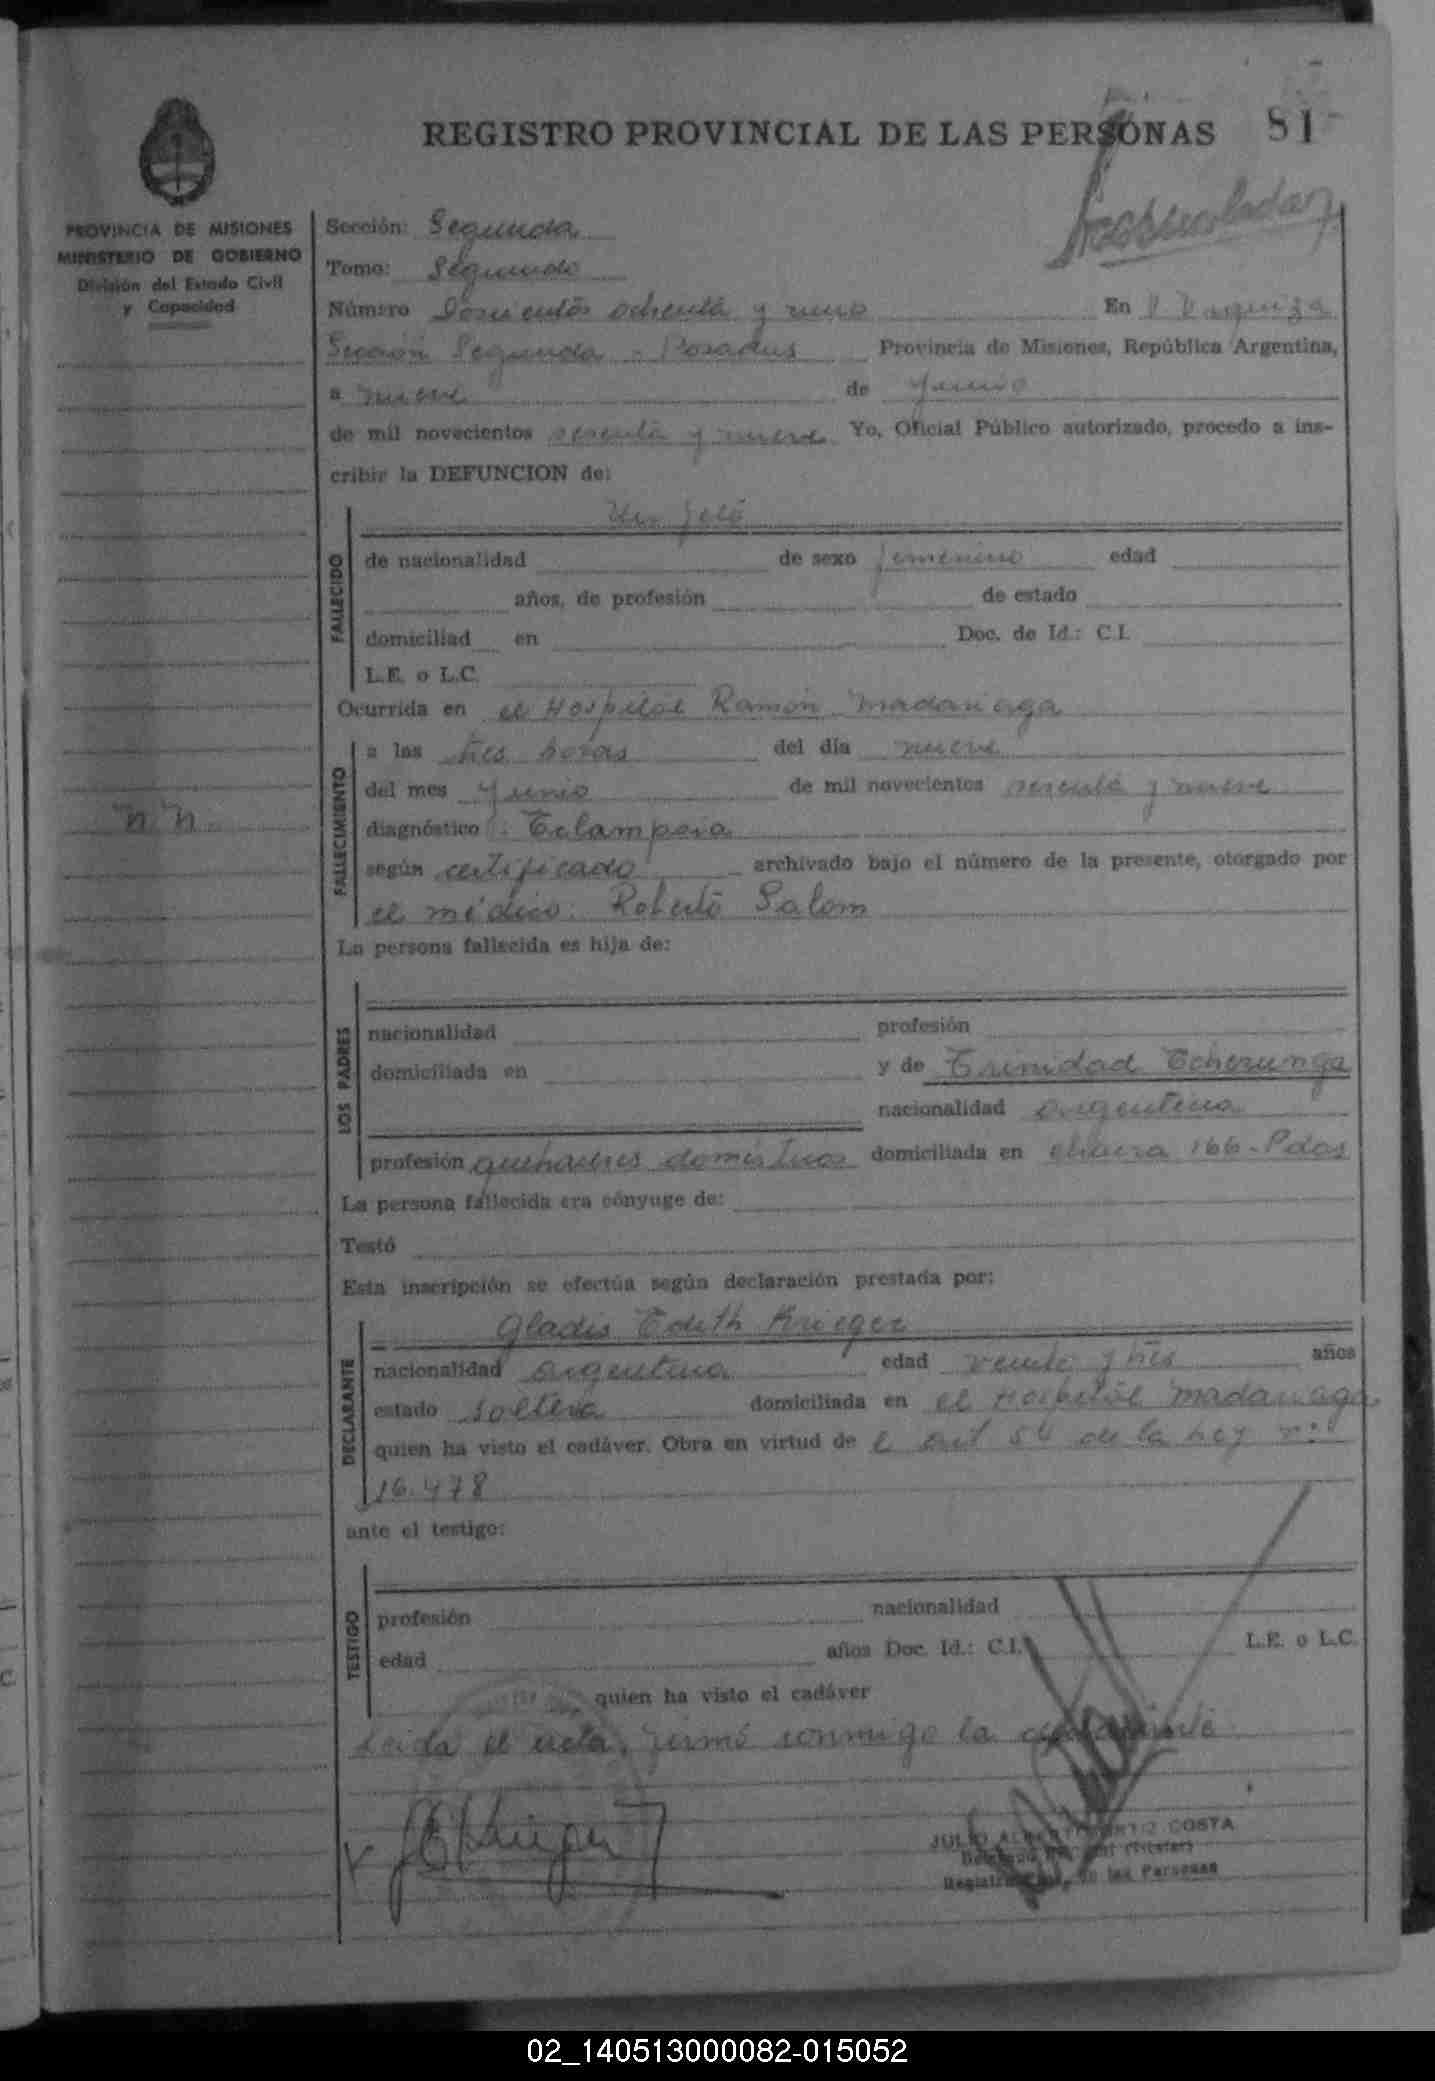 REGISTRO PROVINCIAL DE LAS PERSONAS 81
PROVINCIA DE MISIONES
MINISTERIO DE GOBIERNO
División del Estado Civil
y Capacidad
Sección: Segunda
Tomo: Segundo
Número Doscientos ochenta y uno En V. Urquiza
Sección Segunda - Posadas Provincia de Misiones, República Argentina,
a nueve de Junio
de mil novecientos sesenta y nueve Yo, Oficial Público autorizado, procedo a ins-
cribir la DEFUNCION de:
FALLECIDO
Un feto
de nacionalidad de sexo femenino edad
años, de profesión de estado
domiciliad en Doc. de Id.: C.I.
L.E. o L.C.
Ocurrida en el Hospital Ramón Madariaga
FALLECIMIENTO
a las tres horas del día nueve
del mes Junio de mil novecientos sesenta y nueve
n.n.
diagnóstico : Eclampsia
según certificado archivado bajo el número de la presente, otorgado por
el médico: Roberto Salom
La persona fallecida es hija de:
LOS PADRES
nacionalidad profesión
domiciliada en y de Trinidad
nacionalidad argentina
profesión quehaceres domésticos domiciliada en 166 - Pdas
La persona fallecida era cónyuge de:
Testó
Esta inscripción se efectúa según declaración prestada por:
DECLARANTE
Gladis Edith Krieger
nacionalidad argentina edad veinte y tres años
estado soltera domiciliada en el Hospital Madariaga
quien ha visto el cadáver. Obra en virtud de l art 54 de la Ley n:
16.478
ante el testigo:
TESTIGO
profesión nacionalidad
edad años Doc. Id.: C.I. L.E. o L.C.
quien ha visto el cadáver
Leida el acta, firmó conmigo la declarante
JULIO ALBERTO ORTIZ COSTA
(Titular)
de las Personas
02_140513000082-015052